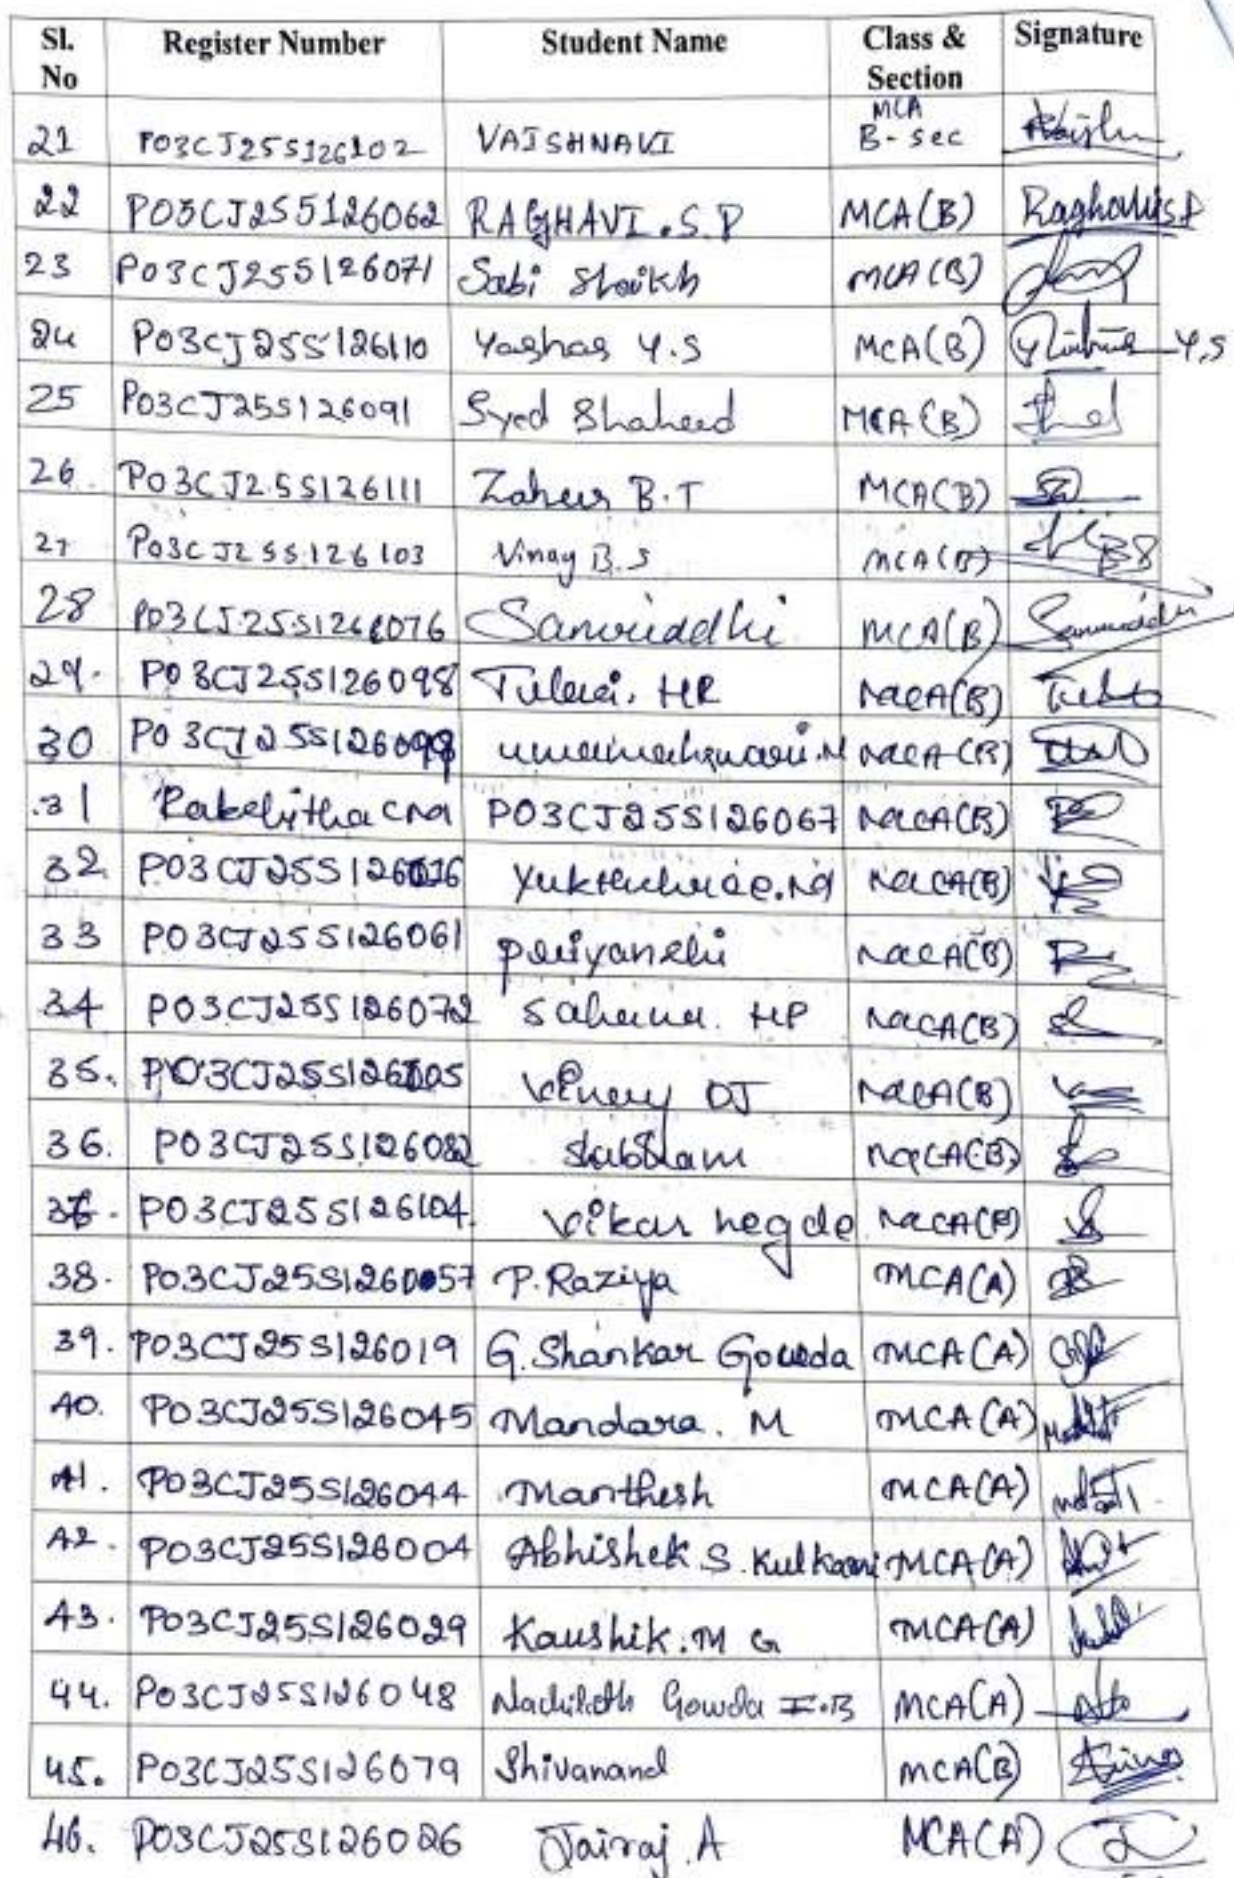 Sl. No Register Number Student Name Class & Section Signature
21 P03CJ25S126102 VAISHNAVI MCA B-sec
22 P03CJ25S126062 RAGHAVI.S.P MCA(B) Raghavi.S.P
23 P03CJ25S126071 Sabi Shaikh MCA(B)
24 P03CJ25S126110 Yashas Y.S MCA(B) Y.S
25 P03CJ25S126091 Syed Shaheed MCA(B)
26. P03CJ25S126111 Zaheer B.T MCA(B)
27 P03CJ25S126103 Vinay B.S MCA(B)
28 P03CJ25S126076 Samruddhi MCA(B) Samruddhi
29. P03CJ25S126098 Tulasi. HR MCA(B)
30 P03CJ25S126099 MCA(B)
31 P03CJ25S126067 MCA(B)
32 MCA(B)
33 P03CJ25S126061 Priyanshi MCA(B)
34 P03CJ25S126072 Sahana. HP MCA(B)
35. P03CJ25S126105 Vinay DJ MCA(B)
36. P03CJ25S126082 Shabnam MCA(B)
P03CJ25S126104 Vikas hegde MCA(B)
38. P03CJ25S126057 P.Raziya MCA(A)
39. P03CJ25S126019 G.Shankar Gowda MCA(A)
40. P03CJ25S126045 Mandara. M MCA(A)
41. P03CJ25S126044 Manthesh MCA(A)
42. P03CJ25S126004 Abhishek S. Kulkarni MCA(A)
43. P03CJ25S126029 Kaushik.M G MCA(A)
44. P03CJ25S126048 Gowda MCA(A)
45. P03CJ25S126079 Shivanand MCA(B)
46. P03CJ25S126026 Jairaj.A MCA(A)